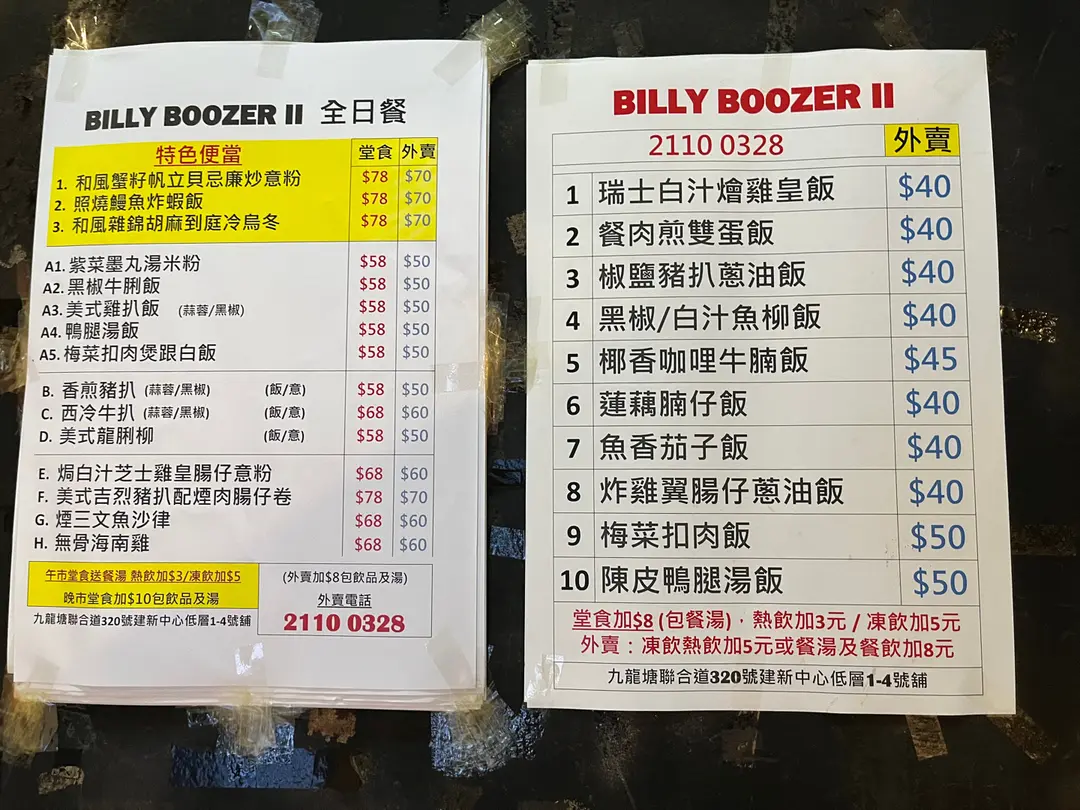 BILLY BOOZER II 全日餐
特色便當 堂食 外賣
1. 和風蟹籽帆立貝忌廉炒意粉 $78 $70
2. 照燒鰻魚炸蝦飯 $78 $70
3. 和風雜錦胡麻到庭冷烏冬 $78 $70
A1. 紫菜墨丸湯米粉 $58 $50
A2. 黑椒牛脷飯 $58 $50
A3. 美式雞扒飯 (蒜蓉/黑椒) $58 $50
A4. 鴨腿湯飯 $58 $50
A5. 梅菜扣肉煲跟白飯 $58 $50
B. 香煎豬扒 (蒜蓉/黑椒) (飯/意) $58 $50
C. 西冷牛扒 (蒜蓉/黑椒) (飯/意) $68 $60
D. 美式龍脷柳 (飯/意) $58 $50
E. 焗白汁芝士雞皇腸仔意粉 $68 $60
F. 美式吉烈豬扒配煙肉腸仔卷 $78 $70
G. 煙三文魚沙律 $68 $60
H. 無骨海南雞 $68 $60
午市堂食送餐湯 熱飲加$3/凍飲加$5
晚市堂食加$10包飲品及湯
九龍塘聯合道320號建新中心低層1-4號舖
(外賣加$8包飲品及湯)
外賣電話
2110 0328
BILLY BOOZER II
2110 0328 外賣
1 瑞士白汁燴雞皇飯 $40
2 餐肉煎雙蛋飯 $40
3 椒鹽豬扒蔥油飯 $40
4 黑椒/白汁魚柳飯 $40
5 椰香咖哩牛腩飯 $45
6 蓮藕腩仔飯 $40
7 魚香茄子飯 $40
8 炸雞翼腸仔蔥油飯 $40
9 梅菜扣肉飯 $50
10 陳皮鴨腿湯飯 $50
堂食加$8 (包餐湯)，熱飲加3元 / 凍飲加5元
外賣：凍飲熱飲加5元或餐湯及餐飲加8元
九龍塘聯合道320號建新中心低層1-4號舖